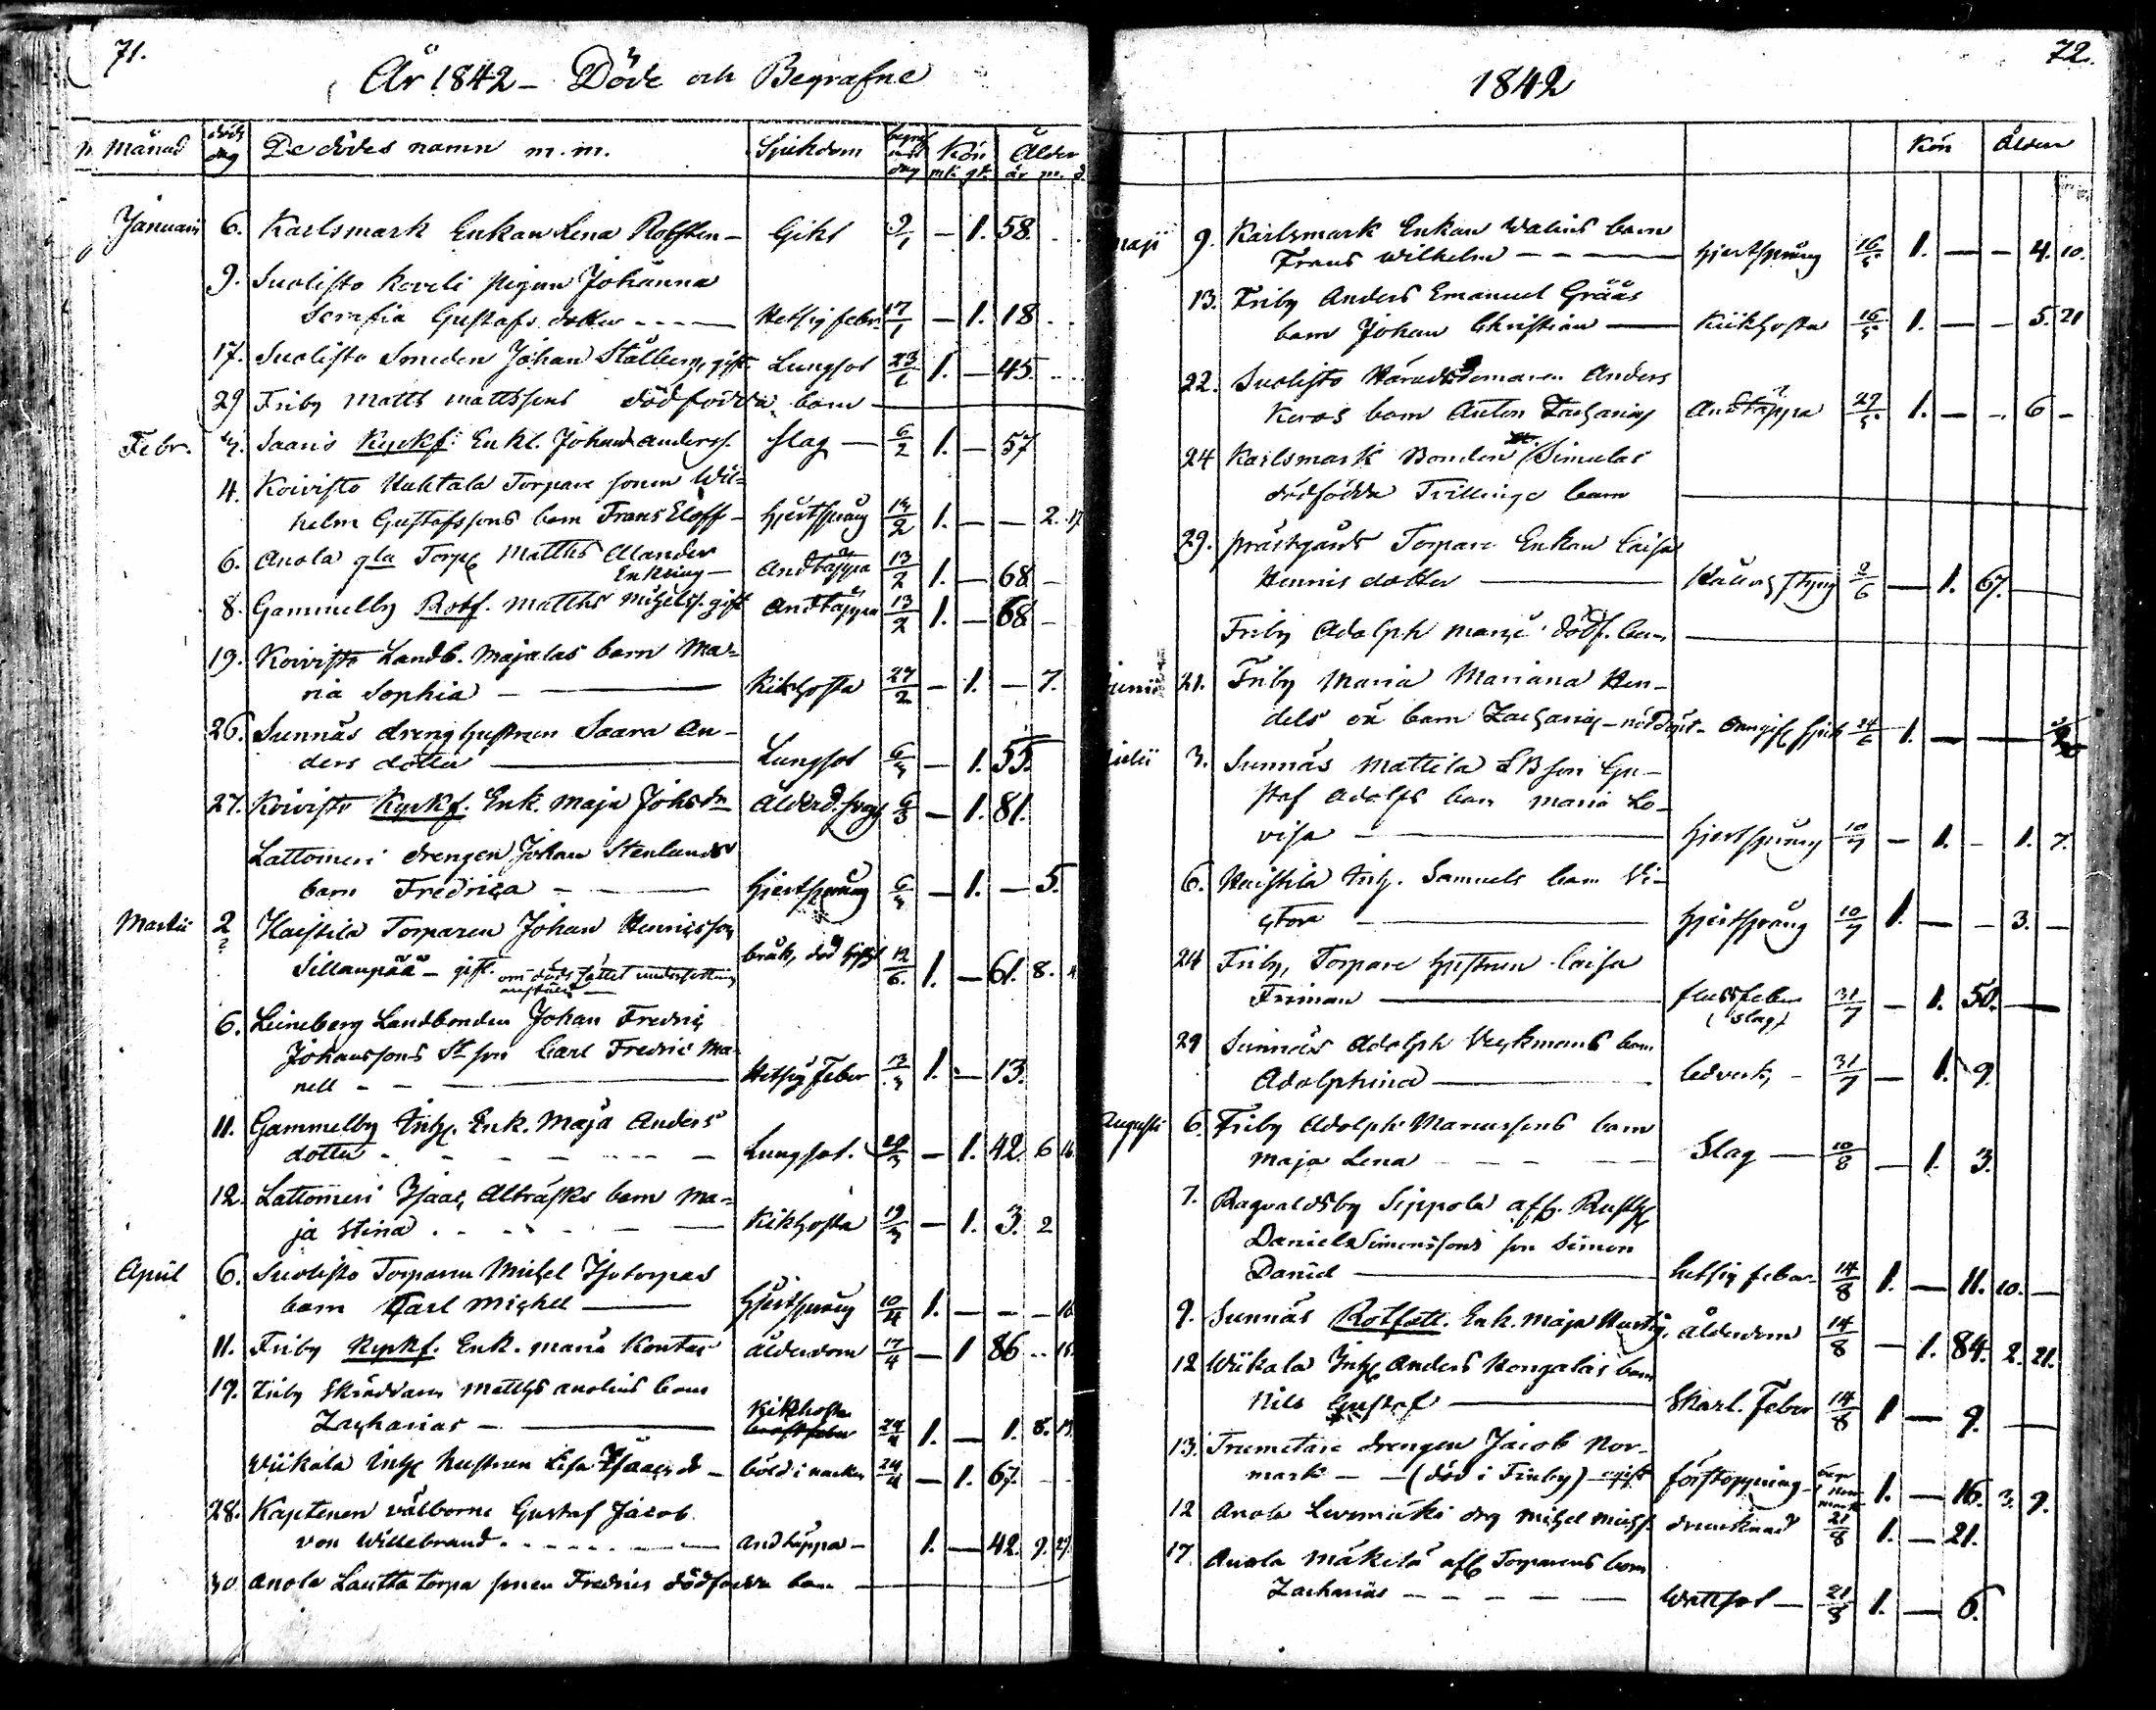 71.
År 1842 - Döde och Begrafne
Månad döds dag De dödes namn m.m. Sjukdom begraf dag Kön Ålder
mk. qk. år m. d.
Januari 6. Karlsmark Enkan Lena Rothsten - Gikt 9/1 - 1. 58.
9. Suolisto Koveli pigan Johanna
Serafia Gustafs dotter - - - Hetsig feber 17/1 - 1. 18
17. Suolisto Smeden Johan Stålberg, gift Lungsot 23/1 1. - 45.
29 Friby Matts Mattssons dödfödda barn
Febr. 3. Saaris Kyrkf. Enkl. Johan Anderss. Slag - 6/2 1. - 57
4. Koivisto Huktala Torpare sonen Wil-
helm Gustafssons barn Frans Eloff - Hjertsprång 13/2 1. - - 2. 17
6. Anola gla Torp. Matths Alander
Enkling - Andtäppa 13/2 1. - 68 -
8. Gammelby Rotf. Matths Michelss. gift Andtäppa 13/2 1. - 68 -
19. Koivisto Landb. Majalas barn Ma-
ria Sophia - Kikhosta 27/2 - 1. - 7.
26. Sunnäs dreng hustrun Saara An-
ders dotter Lungsot 6/3 - 1. 55.
27. Koivisto Kyrkf. Enk. Maja Johsdr Ålderd. svag 6/3 - 1. 81.
Lattomeri drengen Johan Stenlunds
barn Fredrica - Hjertsprång 6/3 - 1. - 5.
Martii 2 Haistila Torparen Johan Henricsson
Sillanpää - gift. bråk, 12/6. 1. - 61. 8.
om döds sättet undersökning
6. Leineberg Landbonden Johan Fredric
Johanssons St. son Carl Fredric Ma-
nell - - Hetsig Feber 13/3 1. - 13.
11. Gammelby Inh. Enk. Maja Anders
dotter - - - Lungsot. 20/3 - 1. 42. 6 16
12. Lattomeri Isaac Alträsks barn Ma-
ja Stina - - - Kikhosta 19/3 - 1. 3. 2
April 6. Suolisto Torparen Michel Isotorpas
barn Carl Michel Hjertsprång 10/4 1. - - - 16
11. Friby Kyrkf. Enk. Maria Kontas ålderdom 17/4 - 1 86 - 15
17. Friby Skräddaren Matths Anolins barn
Zacharias - Kikhosta 24/4 1. - 1. 8. 13.
Wiikala Inh. Hustrun Lisa Isaacs d. - böld i nacken 24/4 - 1. 67. - -
28. Kaptenen välborne Gustaf Jacob
von Willebrand - - - andtäppa - 1. - 42. 9. 27.
30 Anola Lautta torpa sonen Fredrics dödfödda barn

72.
1842
Kön Ålder
Maji 9. Karlsmark Enkan Walins barn
Frans Wilhelm - - - Hjertsprång 16/5 1. - - 4. 10.
13. Friby Anders Emanuel Grääs
barn Johan Christian Kikhosta 16/5 1. - - 5. 21
22. Suolisto Häradsdomaren Anders
Keros barn Anton Zacharias Andtäppa 29/5 1. - - 6 -
24 Karlsmark Bonden Simulas
dödfödda Tvillinge barn
29. Prästgårds Torpare Enkan Caisa
Henriks dotter Håll och styng 2/6 - 1. 67.
Friby Adolph dödf. barn
Junii 21. Friby Maria Mariana Hen-
dels oä barn Zacharias - nöddöpt - oangif. sjuk 24/6 1. - -
Julii 3. Sunnäs Mattila LB son Gu-
staf Adolfs barn Maria Lo-
visa - Hjertsprång 10/7 - 1. - 1. 7.
6. Haistila Inh. Samuels barn Vi-
ctor Hjertsprång 10/7 1. - - 3. -
24 Friby, Torpare hustrun Caisa
Friman flussfeber (slag) 31/7 - 1. 50.
29 Sunnäs Adolph Veckmans barn
Adolphina ledverk, - 31/7 - 1. 9.
Augusti 6. Friby Adolph Manussons barn
Maja Lena - - - Slag - 10/8 - 1. 3.
7. Ragvaldsby Sippola aff. Rusth.
Daniel Simonssons son Simon
Daniel hetsig feber 14/8 1. - 11. 10. -
9. Sunnäs Rotfatt. Enk. Maja Hurtig, ålderdom 14/8 - 1. 84. 2. 21.
12 Wiikala Inh. Anders Kongalas barn
Nils Gustaf Skarl. Feber 14/8 1 - 9.
13. Trumetare drengen Jacob Nor-
mark - - (död i Finby) - ogift förstoppning - 1. - 16. 3. 9.
12 Anola Levemäki drg Michel Michss. drunknad 21/8 1. - 21.
17. Anola Mäkilä aff. Torparens barn
Zacharias - - - Wattsot - 21/8 1. - 6.